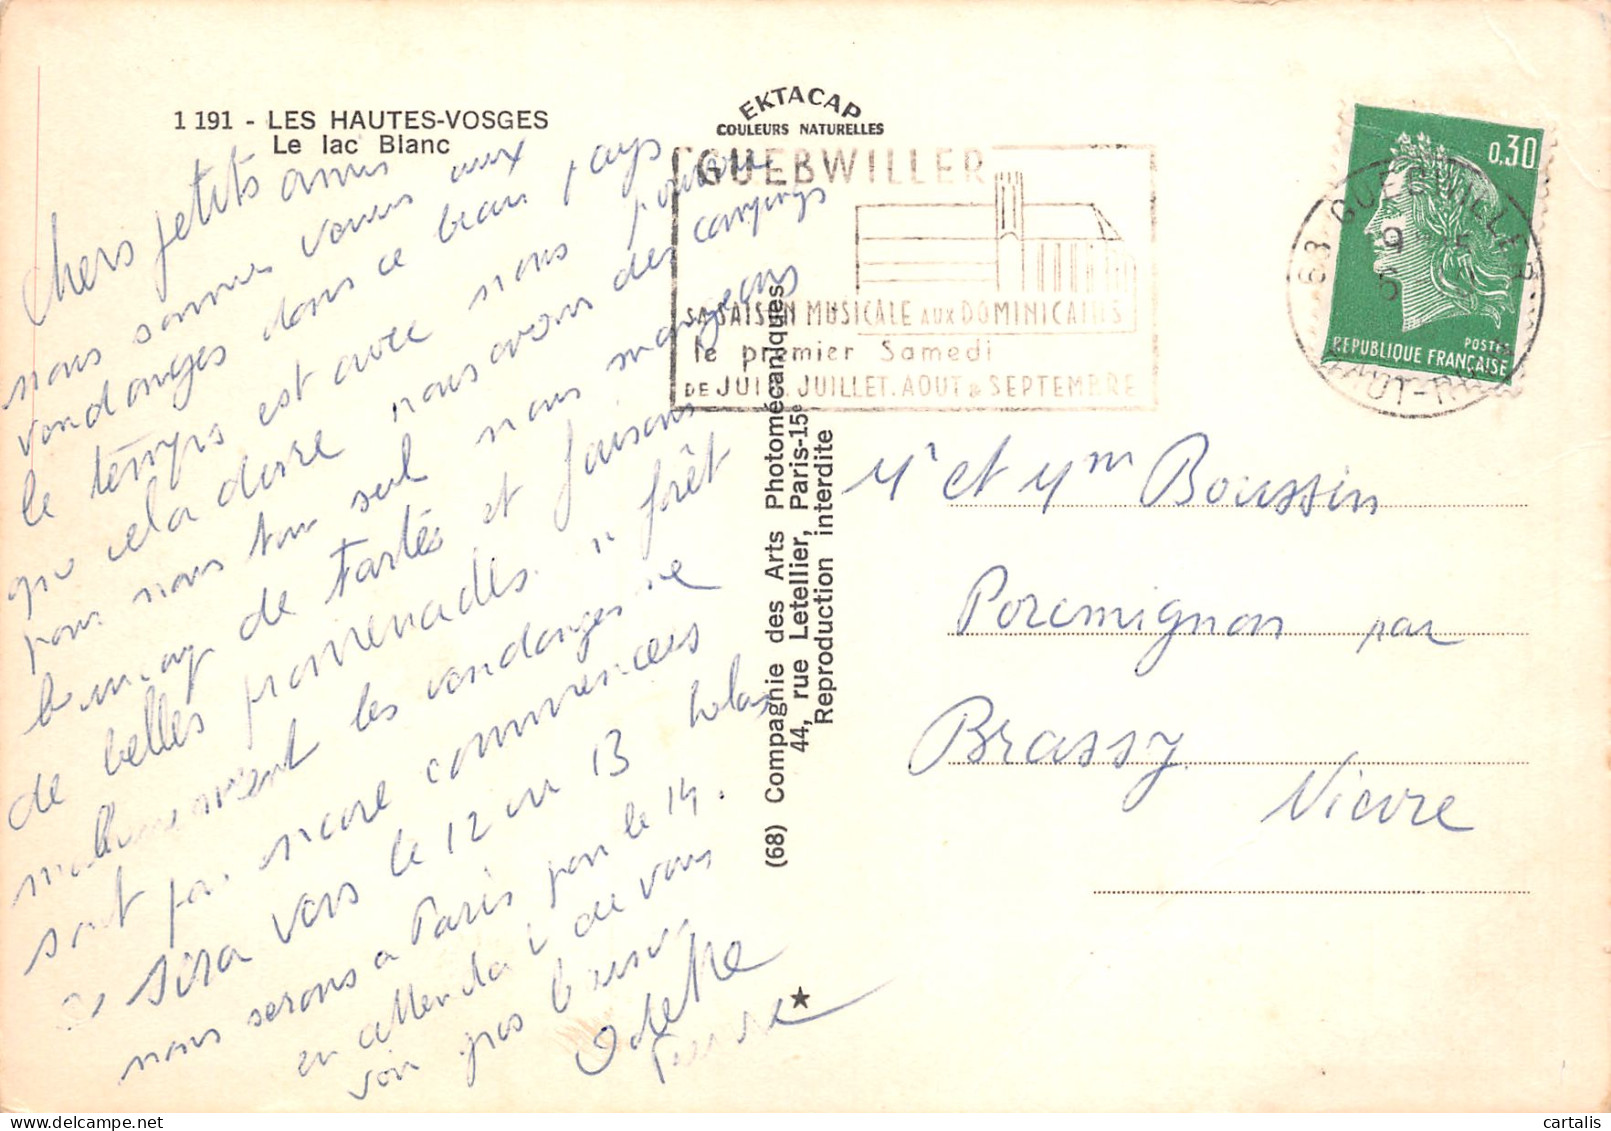 1 191 - LES HAUTES-VOSGES
Le lac Blanc
Chers petits amis
nous sommes venus aux
vendanges dans ce beau pays
le temps est avec nous pourvu
que cela dure nous avons des campings
pour nous tout seul nous mangeons
beaucoup de tartes et faisons
de belles promenades " forêt
malheureusement les vendanges ne
sont pas encore commencées
se sera vers le 12 ou 13 helas
nous serons a Paris pour le 14.
en attendant de vous
voir gros baisers
Odette
Pierre
EKTACAP
COULEURS NATURELLES
(68) Compagnie des Arts Photomécaniques
44, rue Letellier, Paris-15e
Reproduction interdite
★
GUEBWILLER
SA SAISON MUSICALE AUX DOMINICAINS
le premier Samedi
DE JUIN. JUILLET. AOUT & SEPTEMBRE
0,30
POSTES
REPUBLIQUE FRANÇAISE
68 GUEBWILLER
HAUT-RHIN
Mr et Mme Boussin
Poremignon par
Brassy
Nievre
cartalis